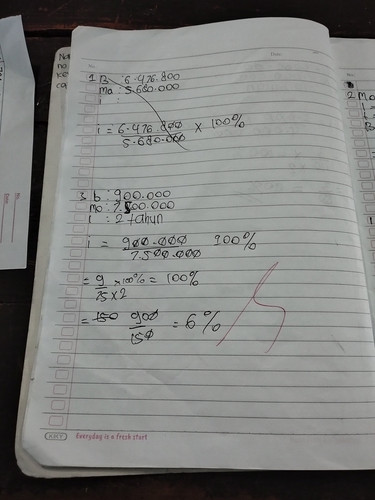 1 B : 6.476.800
Mo : 5.680.000
i :
i = 6.476.800 x 100%
5.680.000
3. b : 900.000
Mo : 7.500.000
i : 2 tahun
i = 900.000 100%
7.500.000
= 9 x 100% = 100%
75 x 2
= 150 900 = 6%
150
KKY Everyday is a fresh start
2 Mo